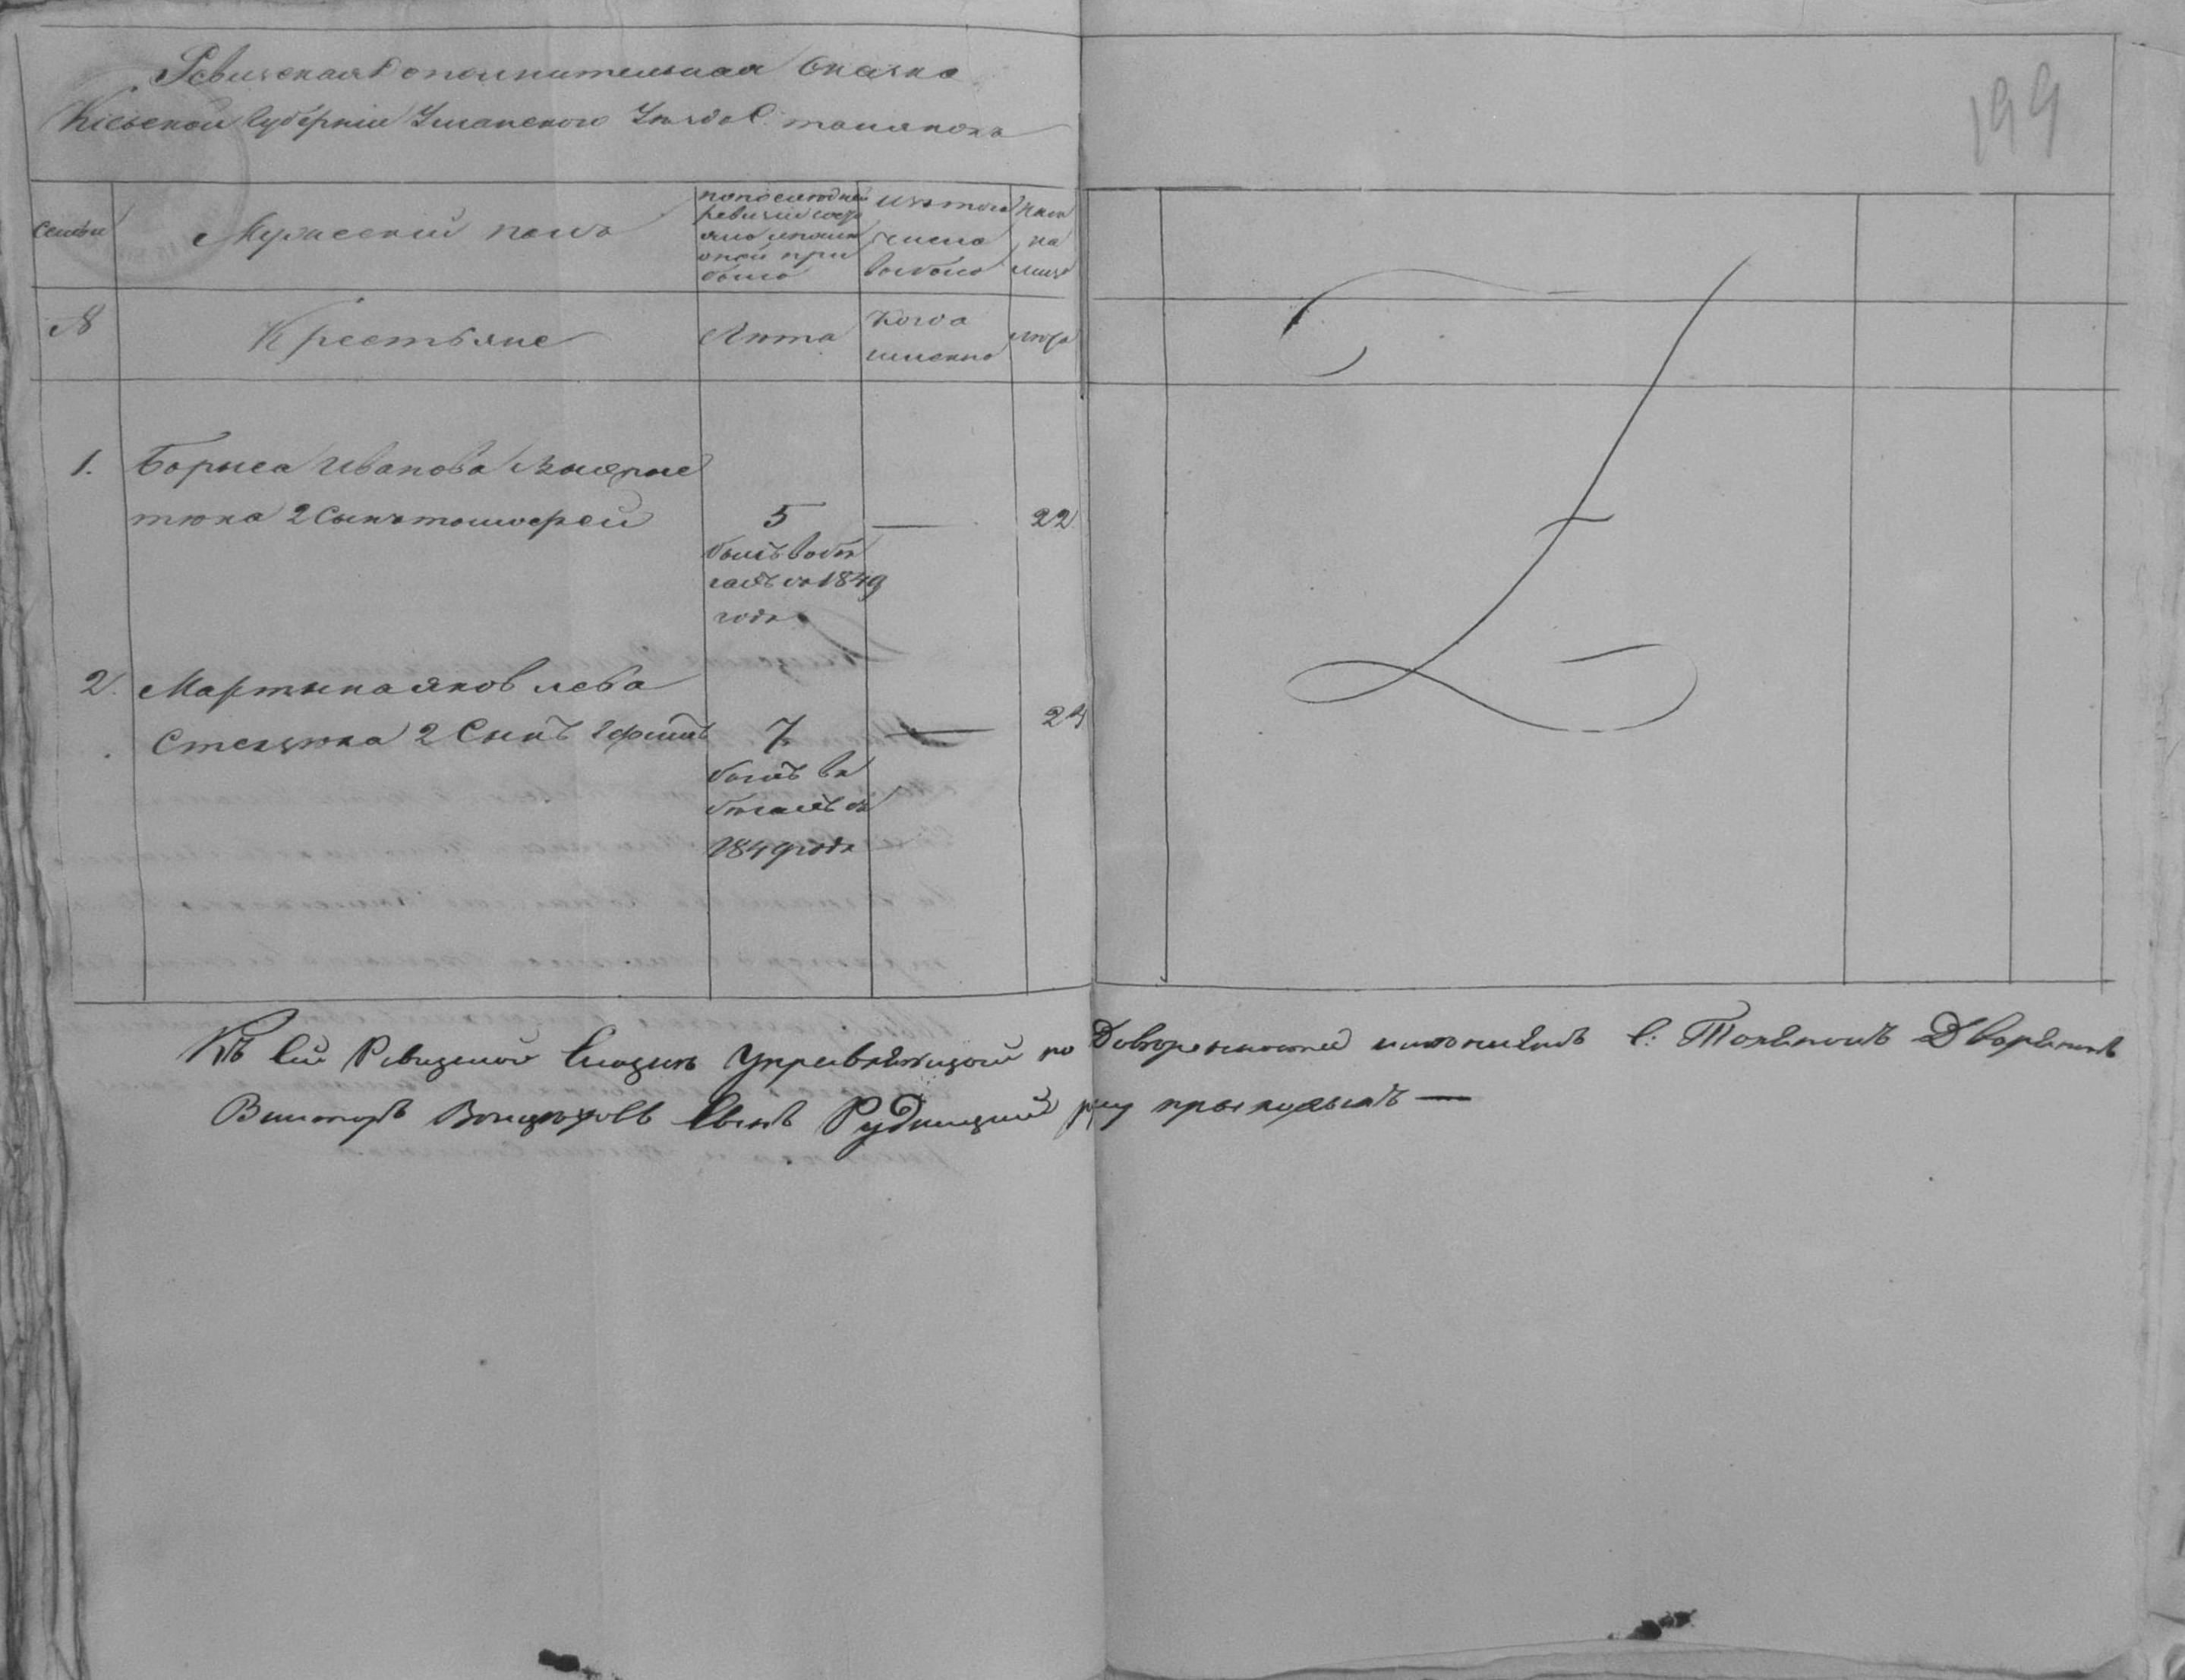 Ревизская дополнительная сказка
Кіевской Губерніи Уманского Уезда С.
199
семьи
Мужеский полъ
по последней
ревизіи состо
яло и после
оной при
было
изъ того
числа
выбыло
ныне
на
лицо
№
Крестьяне
Лета
Когда
именно
лета
1.
Борыса Иванова
тюка 2 Сынъ
5
22
былъ въ бе
гахъ съ 1849
года
2.
Мартына Яковлева
Стецюка 2 Сынъ
7
24
былъ въ
бегахъ съ
1849 года
Къ сей Ревизской Сказки Управляющій по Доверенности имениемъ С: Дворянинъ
Викторъ Сынъ Рудницкий руку